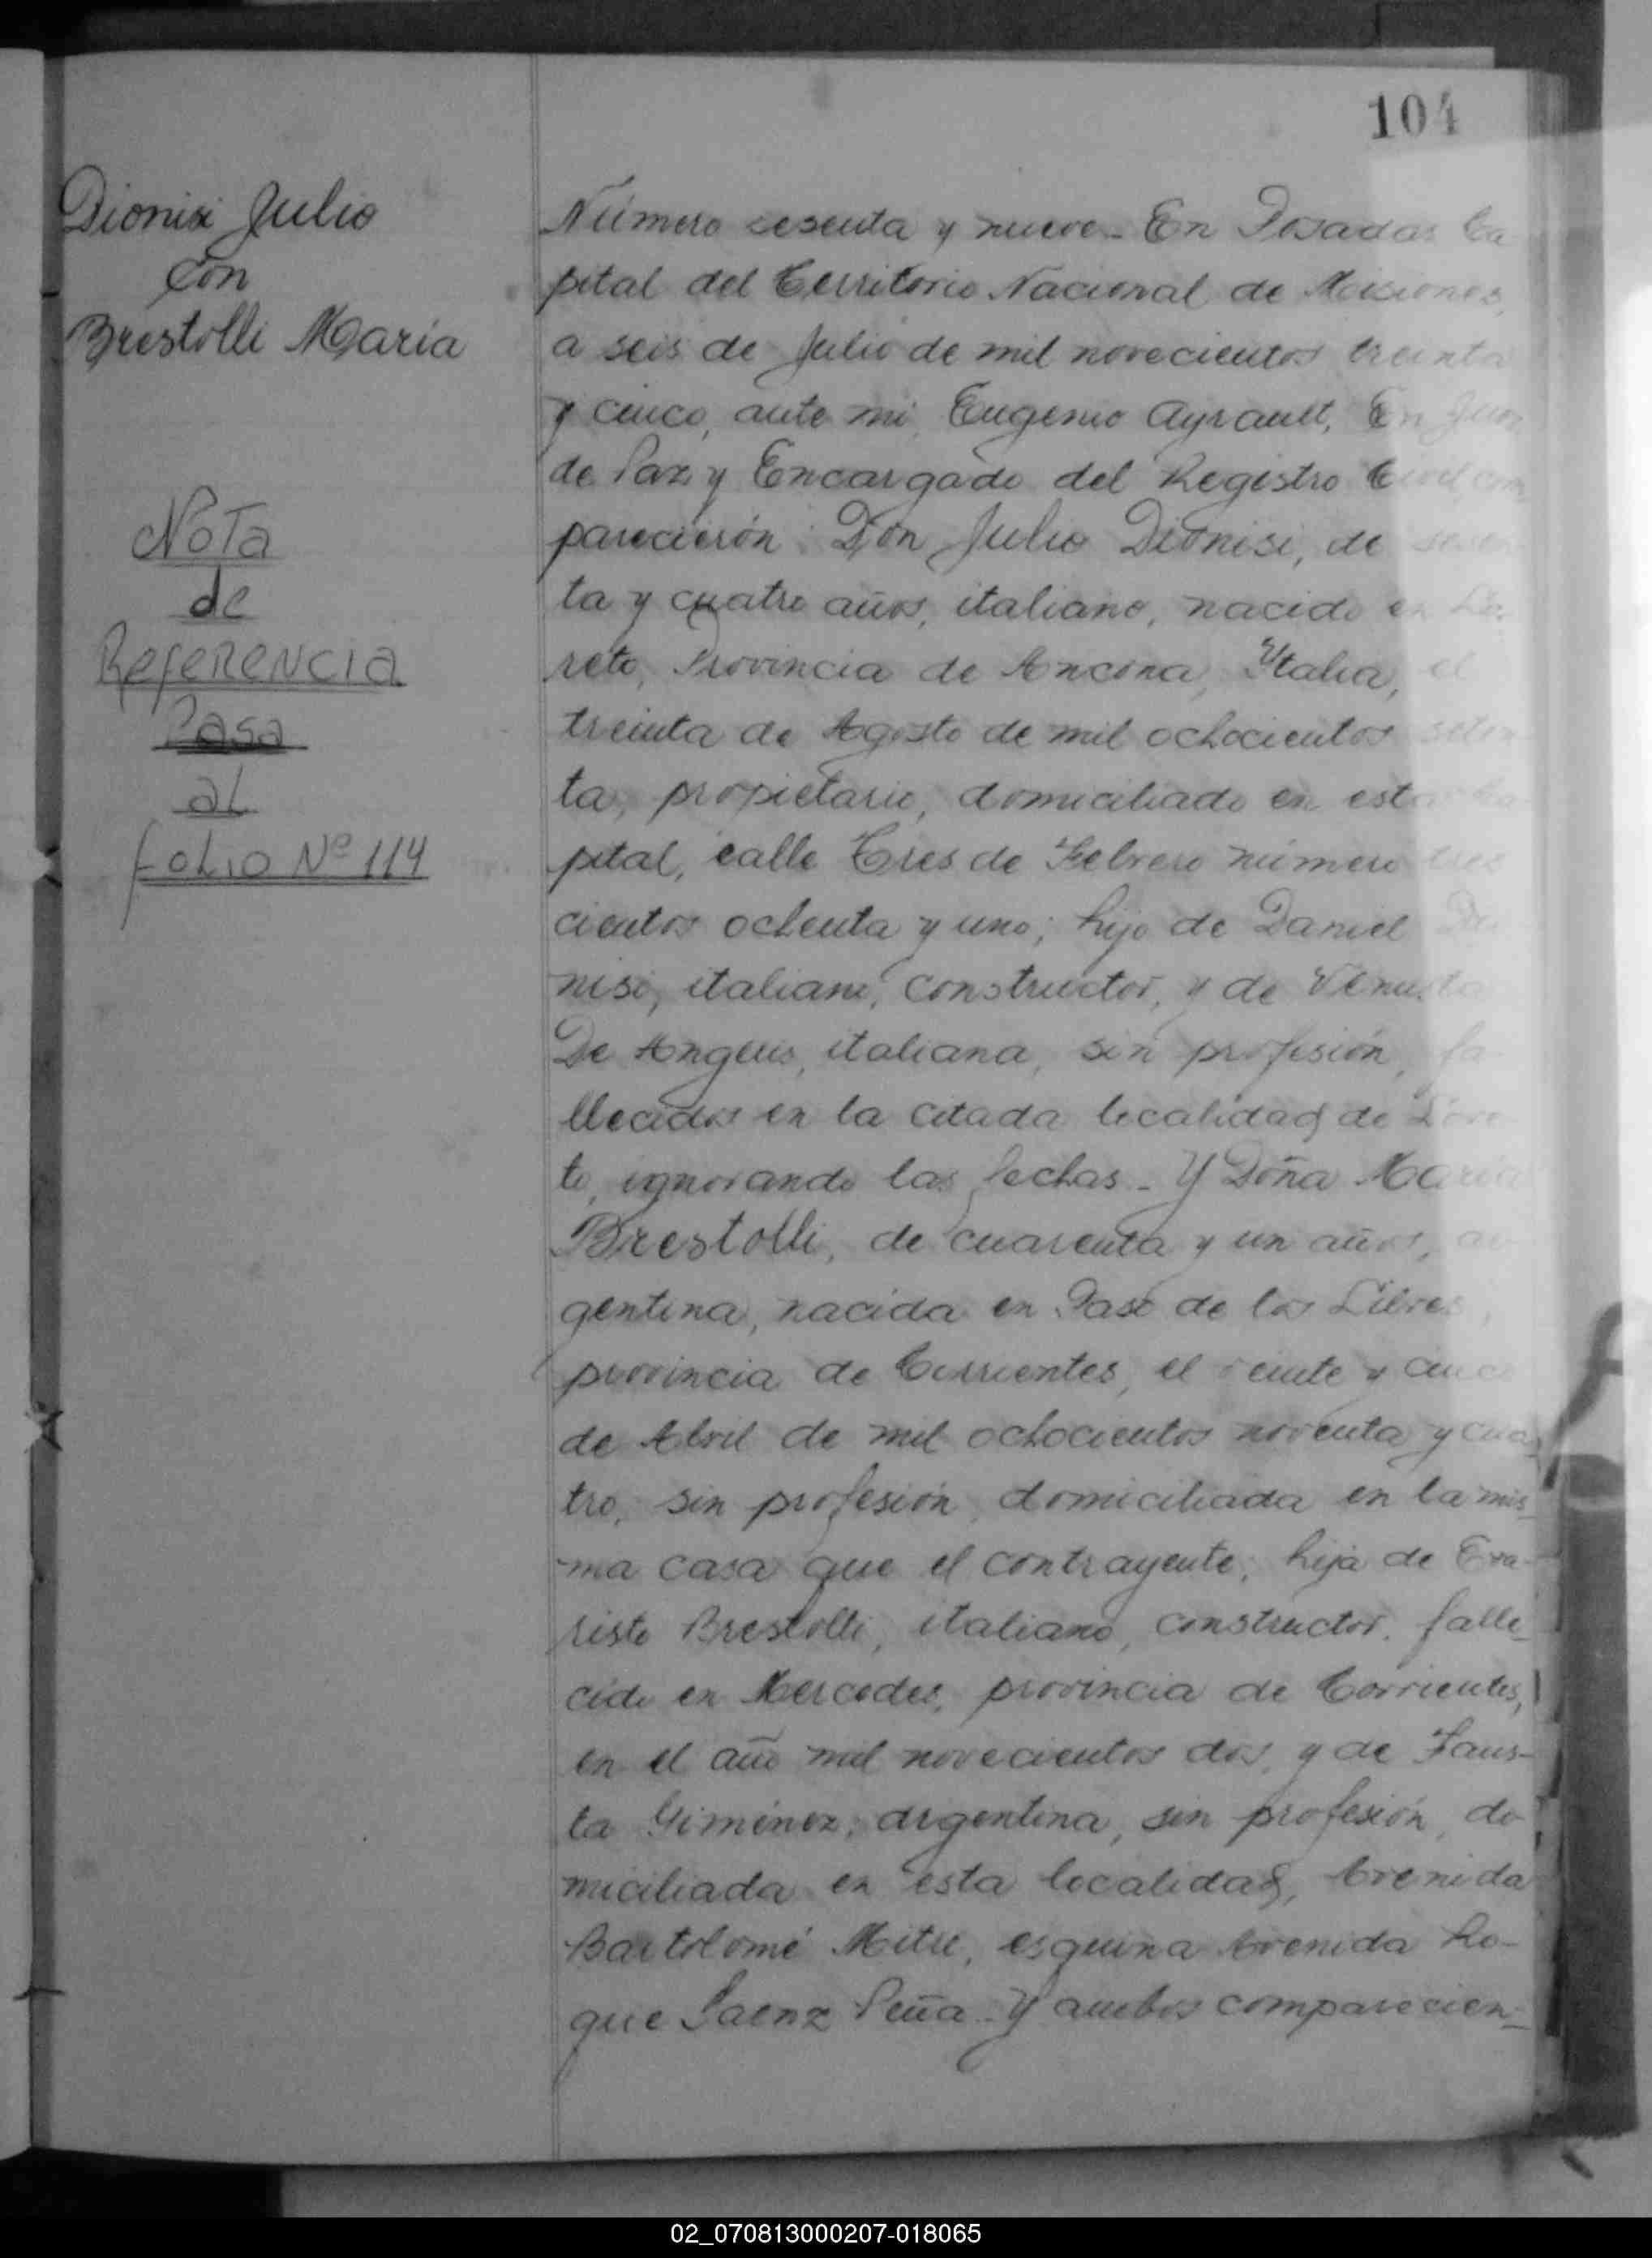 104
Dionisi Julio
con
Brestolli Maria
Nota
de
Referencia
Pasa
al
folio Nº 114
Número sesenta y nueve - En Posadas Ca
pital del Territorio Nacional de Misiones,
a seis de Julio de mil novecientos treinta
y cinco, ante mi, Eugenio Ayrault,
de Paz y Encargado del Registro Civil, com
parecieron: Don Julio Dionisi, de sesen
ta y cuatro años, italiano, nacido en Lo
reto, Provincia de Ancona, Italia, el
treinta de Agosto de mil ochocientos seten
ta, propietario, domiciliado en esta Ca
pital, calle Tres de Febrero número tres
cientos ochenta y uno; hijo de Daniel Dio
nisi, italiano, constructor, y de Venusta
De Angelis, italiana, sin profesión, fa
llecidos en la citada localidad de Lore
to, ignorando las fechas - Y Doña Maria
Brestolli, de cuarenta y un años, ar
gentina, nacida en Paso de los Libres,
provincia de Corrientes, el veinte y cinco
de Abril de mil ochocientos noventa y cua
tro, sin profesión, domiciliada en la mis
ma casa que el contrayente; hija de Eva-
risto Brestolli, italiano, constructor, falle_
cido en Mercedes, provincia de Corrientes,
en el año mil novecientos dos, y de Faus-
ta Giménez, argentina, sin profesión, do
miciliada en esta localidad, Avenida
Bartolomé Mitre, esquina Avenida Ro-
que Saenz Peña - Y ambos comparecien_
02_070813000207-018065